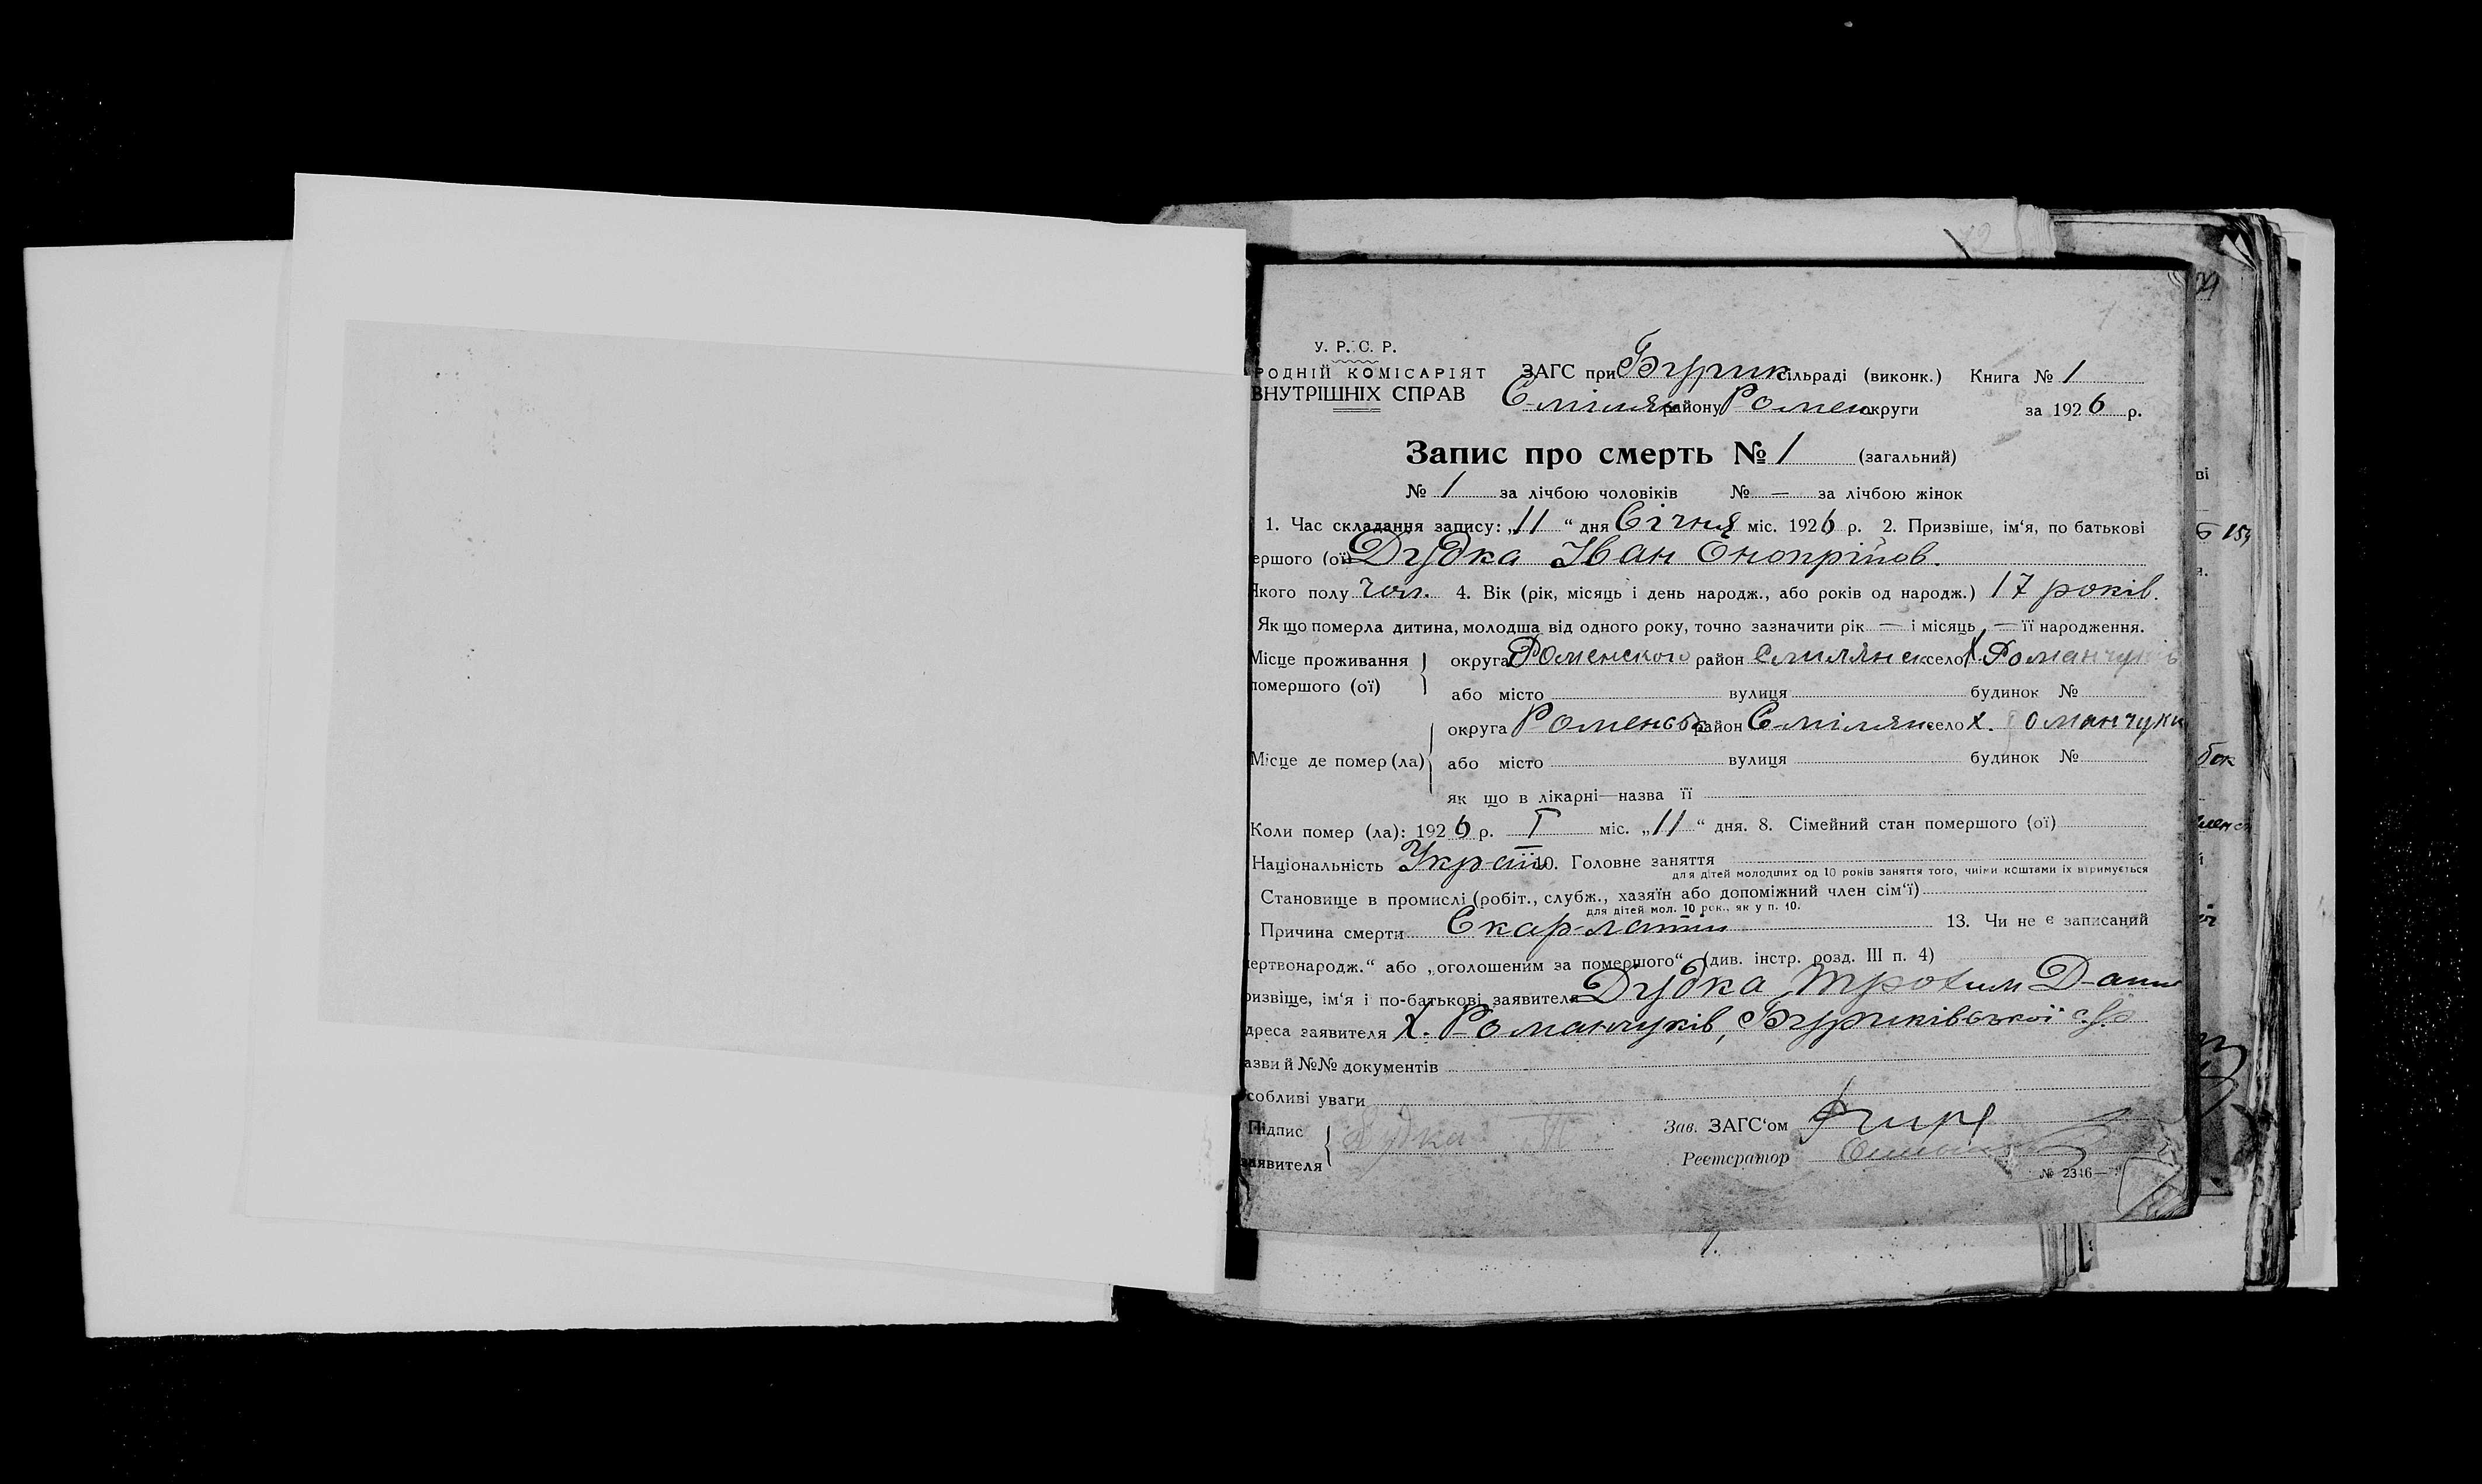 72
У. Р. С. Р.
РОДНІЙ КОМІСАРІЯТ ЗАГС при Бурик сільраді (виконк.) Книга № 1
ВНУТРІШНІХ СПРАВ Смілян району Ромен округи за 1926 р.
Запис про смерть № 1 (загальний)
№ 1 за лічбою чоловіків № — за лічбою жінок
1. Час складання запису: „11“ дня Січня міс. 1926 р. 2. Призвіше, ім‘я, по батькові
ершого (ої) Дудка Іван Онопрійов.
Якого полу чол. 4. Вік (рік, місяць і день народж., або років од народж.) 17 років.
Як що померла дитина, молодша від одного року, точно зазначити рік — і місяць — її народження.
Місце проживання округа Роменской район Смилянск село х. Романчуків
помершого (ої) або місто вулиця будинок №
округа Роменськ район Смілян село х. Романчуки
Місце де помер (ла) або місто вулиця будинок №
як що в лікарні—назва її
Коли помер (ла): 1926 р. I міс. „11“ дня. 8. Сімейний стан помершого (ої)
Національність Україн 10. Головне заняття
для дітей молодших од 10 років заняття того, чиїми коштами їх втримується
Становище в промислі (робіт., служб., хазяїн або допоміжний член сім‘ї)
для дітей мол. 10 рок., як у п. 10.
Причина смерти Скарлатин 13. Чи не є записаний
ертвонародж.“ або „оголошеним за помершого“ (див. інстр. розд. III п. 4)
ризвіще, ім‘я і по-батькові заявителя Дудка Трохим Дани
дреса заявителя х. Романчуків, Буриківської с/р
азви й №№ документів
собливі уваги
Підпис Дудка Т Зав. ЗАГС‘ом
заявителя Реєстратор
№ 2346—